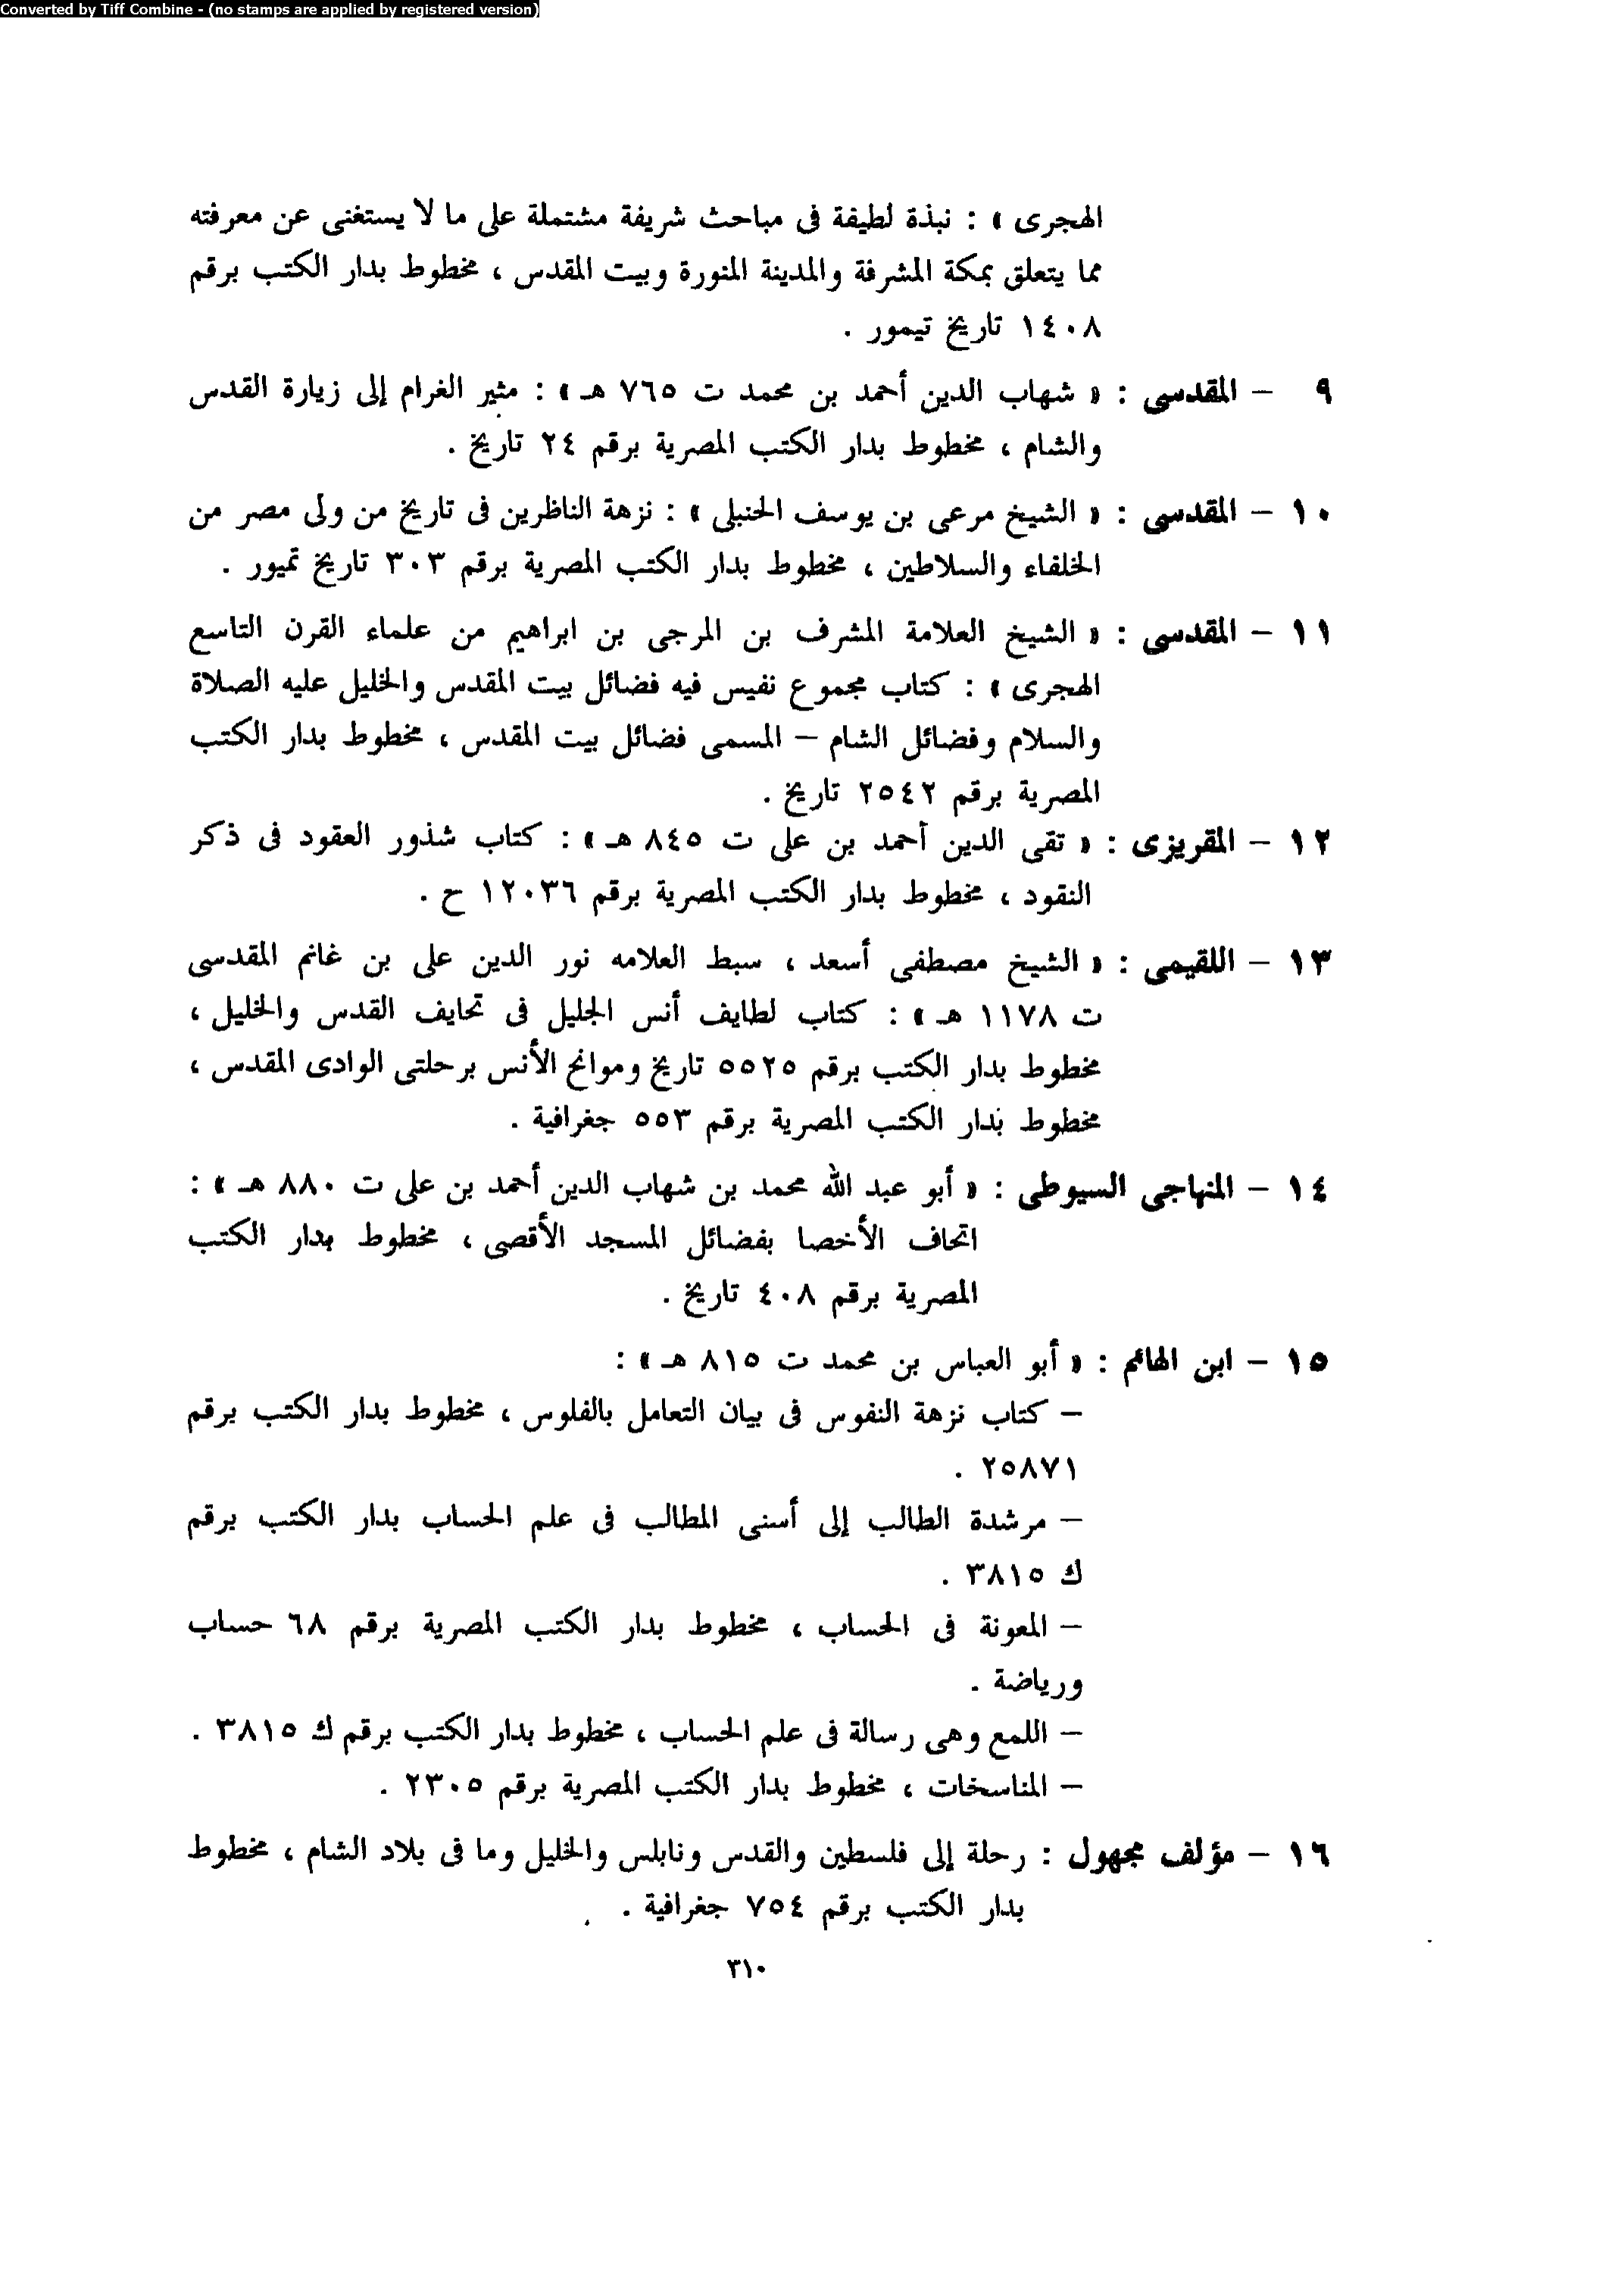 Converted by Tiff Combine - (no stamps are applied by registered version)
الهجرى » : نبذة لطيفة فى مباحث شريفة مشتملة على ما لا يستغنى عن معرفته
مما يتعلق بمكة المشرفة والمدينة المنورة وبيت المقدس ، مخطوط بدار الكتب برقم
١٤٠٨ تاريخ تيمور .
٩ – المقدسى : « شهاب الدين أحمد بن محمد ت ٧٦٥ هـ » : مثير الغرام إلى زيارة القدس
والشام ، مخطوط بدار الكتب المصرية برقم ٢٤ تاريخ .
١٠ – المقدسى : « الشيخ مرعى بن يوسف الحنبلى » : نزهة الناظرين فى تاريخ من ولى مصر من
الخلفاء والسلاطين ، مخطوط بدار الكتب المصرية برقم ٣٠٣ تاريخ تميور .
١١ – المقدسى : « الشيخ العلامة المشرف بن المرجى بن ابراهيم من علماء القرن التاسع
الهجرى » : كتاب مجموع نفيس فيه فضائل بيت المقدس والخليل عليه الصلاة
والسلام وفضائل الشام – المسمى فضائل بيت المقدس ، مخطوط بدار الكتب
المصرية برقم ٢٥٤٢ تاريخ .
١٢ – المقريزى : « تقى الدين أحمد بن على ت ٨٤٥ هـ » : كتاب شذور العقود فى ذكر
النقود ، مخطوط بدار الكتب المصرية برقم ١٢٠٣٦ ح .
١٣ – اللقيمى : « الشيخ مصطفى أسعد ، سبط العلامه نور الدين على بن غانم المقدسى
ت ١١٧٨ هـ » : كتاب لطايف أنس الجليل فى تحايف القدس والخليل ،
مخطوط بدار الكتب برقم ٥٥٢٥ تاريخ وموانح الأنس برحلتى الوادى المقدس ،
مخطوط بدار الكتب المصرية برقم ٥٥٣ جغرافية .
١٤ – المنهاجى السيوطى : « أبو عبد الله محمد بن شهاب الدين أحمد بن على ت ٨٨٠ هـ » :
اتحاف الأخصا بفضائل المسجد الأقصى ، مخطوط بدار الكتب
المصرية برقم ٤٠٨ تاريخ .
١٥ – ابن الهائم : « أبو العباس بن محمد ت ٨١٥ هـ » :
– كتاب نزهة النفوس فى بيان التعامل بالفلوس ، مخطوط بدار الكتب برقم
٢٥٨٧١ .
– مرشدة الطالب إلى أسنى المطالب فى علم الحساب بدار الكتب برقم
ك ٣٨١٥ .
– المعونة فى الحساب ، مخطوط بدار الكتب المصرية برقم ٦٨ حساب
ورياضة .
– اللمع وهى رسالة فى علم الحساب ، مخطوط بدار الكتب برقم ك ٣٨١٥ .
– المناسخات ، مخطوط بدار الكتب المصرية برقم ٢٣٠٥ .
١٦ – مؤلف مجهول : رحلة إلى فلسطين والقدس ونابلس والخليل وما فى بلاد الشام ، مخطوط
بدار الكتب برقم ٧٥٤ جغرافية .
٣١٠